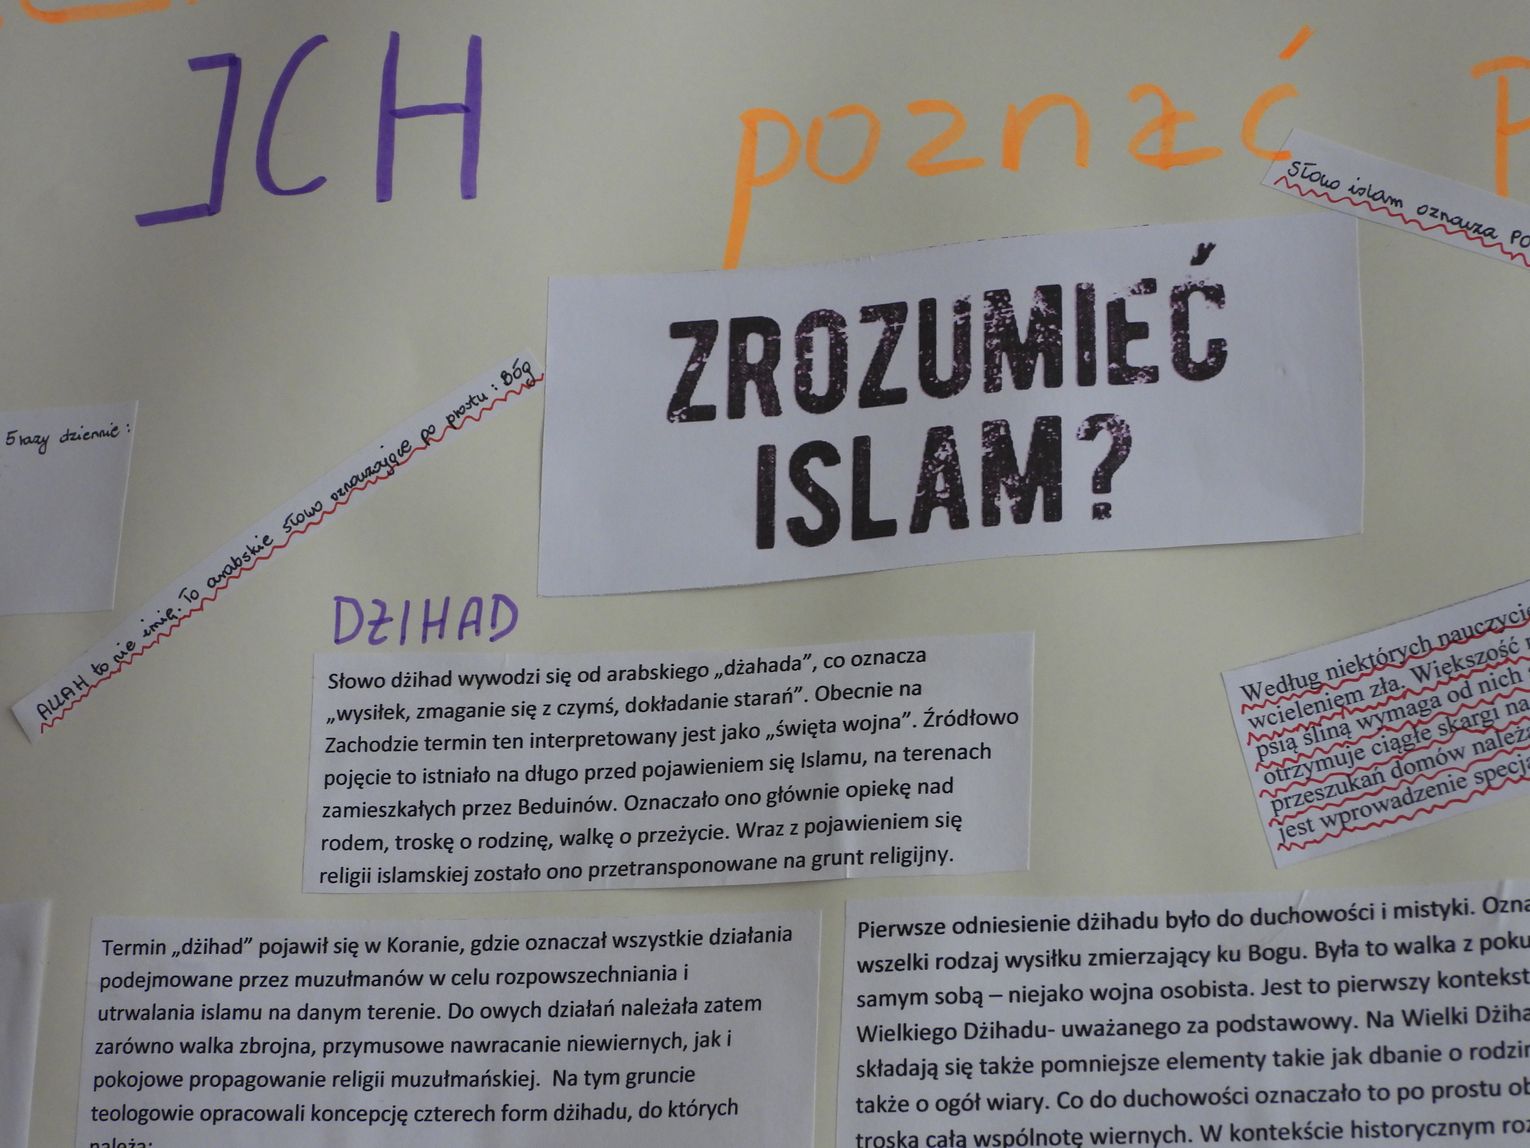 JCH poznać
Słowo islam oznacza
ZROZUMIEĆ
ISLAM?
5 razy dziennie:
ALLAH to nie imię. To arabskie słowo oznaczające po prostu: Bóg
DŻIHAD
Słowo dżihad wywodzi się od arabskiego „dżahada”, co oznacza
„wysiłek, zmaganie się z czymś, dokładanie starań”. Obecnie na
Zachodzie termin ten interpretowany jest jako „święta wojna”. Źródłowo
pojęcie to istniało na długo przed pojawieniem się Islamu, na terenach
zamieszkałych przez Beduinów. Oznaczało ono głównie opiekę nad
rodem, troskę o rodzinę, walkę o przeżycie. Wraz z pojawieniem się
religii islamskiej zostało ono przetransponowane na grunt religijny.
Według niektórych
wcieleniem zła. Większość
psią śliną wymaga od nich
otrzymuje ciągłe skargi na
przeszukań domów
jest wprowadzenie
Termin „dżihad” pojawił się w Koranie, gdzie oznaczał wszystkie działania
podejmowane przez muzułmanów w celu rozpowszechniania i
utrwalania islamu na danym terenie. Do owych działań należała zatem
zarówno walka zbrojna, przymusowe nawracanie niewiernych, jak i
pokojowe propagowanie religii muzułmańskiej. Na tym gruncie
teologowie opracowali koncepcję czterech form dżihadu, do których
należą:
Pierwsze odniesienie dżihadu było do duchowości i mistyki.
wszelki rodzaj wysiłku zmierzający ku Bogu. Była to walka z
samym sobą – niejako wojna osobista. Jest to pierwszy kontekst
Wielkiego Dżihadu- uważanego za podstawowy. Na Wielki
składają się także pomniejsze elementy takie jak dbanie o
także o ogół wiary. Co do duchowości oznaczało to po prostu
troska całą wspólnotę wiernych. W kontekście historycznym